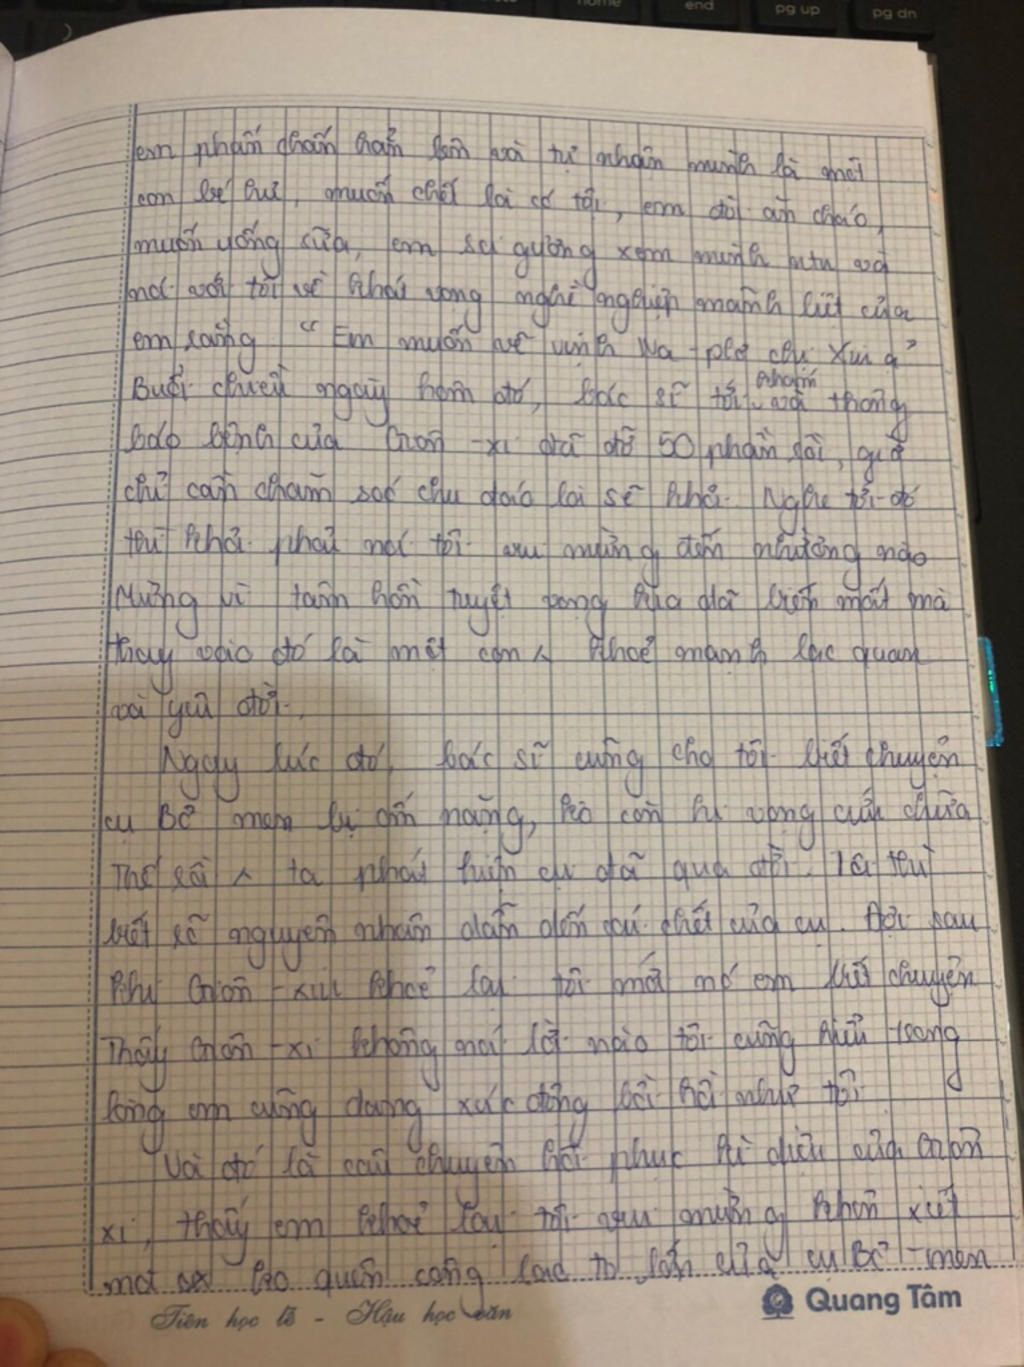 em phấn chấn hẳn lên và tự nhận mình là một
con bé hư, muốn chết là có tội, em đòi ăn cháo,
muốn uống sữa, em soi gương xem mình ntn và
nói với tôi về khát vọng nghề nghiệp mãnh liệt của
em rằng "Em muốn vẽ vịnh Na-plơ chị Xiu ạ"
Buổi chiều ngày hôm đó, bác sĩ tới khám và thông
báo bệnh của Giôn-xi đã đỡ 50 phần rồi, giờ
chỉ cần chăm sóc chu đáo là sẽ khỏi. Nghe tới đó
thì khỏi phải nói tôi vui mừng đến nhường nào
Mừng vì tâm hồn tuyệt vọng kia đã biến mất mà
thay vào đó là một con khoẻ mạnh lạc quan
và yêu đời.
Ngay lúc đó, bác sĩ cũng cho tôi biết chuyện
cụ Bơ men bị ốm nặng, ko còn hi vọng cứu chữa
Thế rồi ta phát hiện cụ đã qua đời. Tôi thì
biết rõ nguyên nhân dẫn đến cái chết của cụ. Đợi sau
khi Giôn-xi khoẻ lại tôi mới nói em biết chuyện
Thấy Giôn-xi không nói lời nào tôi cũng hiểu trong
lòng em cũng đang xúc động bồi hồi như tôi
Và đó là câu chuyện hồi phục kì diệu của Giôn
xi, thấy em khoẻ lại tôi vui mừng khôn xiết
mà ko quên công lao to lớn của cụ Bơ-men
Tiên học lễ - Hậu học văn
Quang Tâm